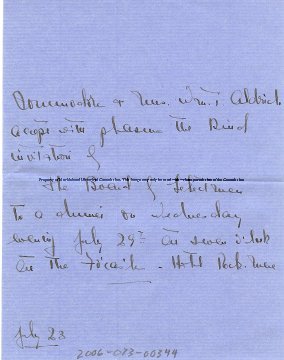 Commodore & Mrs. Wm. T. Aldrich
accept with pleasure the kind
invitation of
The Board of Selectmen
to a dinner on Wednesday
evening July 29th at seven o'clock
at the Fo'castle - Hotel Rock-mere
July 23
2006-073-00344